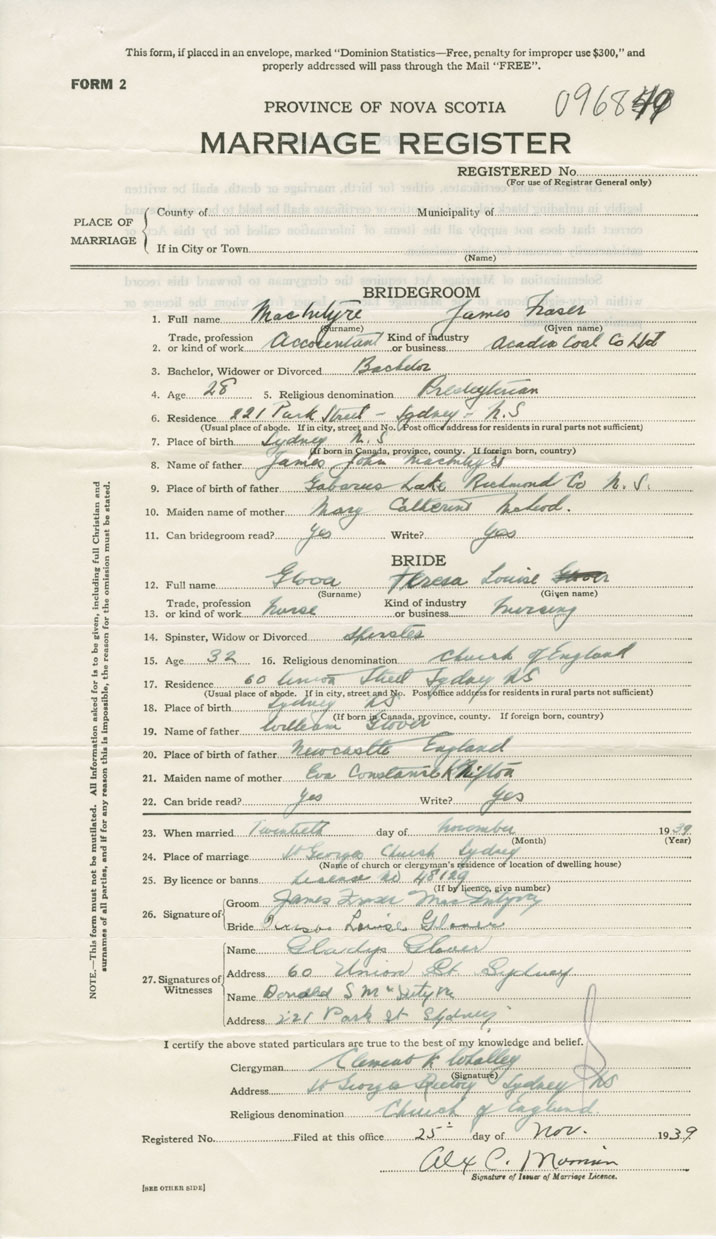 This form, if placed in an envelope, marked "Dominion Statistics—Free, penalty for improper use $300," and
properly addressed will pass through the Mail "FREE".
FORM 2
PROVINCE OF NOVA SCOTIA
09684
MARRIAGE REGISTER
REGISTERED No.
(For use of Registrar General only)
PLACE OF MARRIAGE
County of Municipality of
If in City or Town
(Name)
BRIDEGROOM
1. Full name MacIntyre James Fraser
(Surname) (Given name)
2. Trade, profession or kind of work Accountant Kind of industry or business Acadia Coal Co Ltd
3. Bachelor, Widower or Divorced Bachelor
4. Age 28 5. Religious denomination Presbyterian
6. Residence 221 Park Street - Sydney - N.S
(Usual place of abode. If in city, street and No. Post office address for residents in rural parts not sufficient)
7. Place of birth Sydney N.S
(If born in Canada, province, county. If foreign born, country)
8. Name of father James John MacIntyre
9. Place of birth of father Gabarus Lake Richmond Co N.S.
10. Maiden name of mother Mary Catherine McLeod.
11. Can bridegroom read? Yes Write? Yes
BRIDE
12. Full name Glover Teresa Louise
(Surname) (Given name)
13. Trade, profession or kind of work Nurse Kind of industry or business Nursing
14. Spinster, Widow or Divorced Spinster
15. Age 32 16. Religious denomination Church of England
17. Residence 60 Union Street Sydney NS
(Usual place of abode. If in city, street and No. Post office address for residents in rural parts not sufficient)
18. Place of birth Sydney NS
(If born in Canada, province, county. If foreign born, country)
19. Name of father William Glover
20. Place of birth of father Newcastle England
21. Maiden name of mother Eva Constance Knifton
22. Can bride read? Yes Write? Yes
23. When married Twentieth day of November 1939
(Month) (Year)
24. Place of marriage St Georges Church Sydney
(Name of church or clergyman's residence or location of dwelling house)
25. By licence or banns License No 48129
(If by licence, give number)
26. Signature of
Groom James Fraser MacIntyre
Bride Teresa Louise Glover
27. Signatures of Witnesses
Name Gladys Glover
Address 60 Union St. Sydney
Name Donald S McIntyre
Address 221 Park St Sydney
I certify the above stated particulars are true to the best of my knowledge and belief.
Clergyman Clement K Whalley
(Signature)
Address St Georges Rectory Sydney NS
Religious denomination Church of England.
Registered No. Filed at this office 25 day of Nov. 1939
Alex C.
Signature of Issuer of Marriage Licence.
[SEE OTHER SIDE]
NOTE.—This form must not be mutilated. All information asked for is to be given, including full Christian and
surnames of all parties, and if for any reason this is impossible, the reason for the omission must be stated.